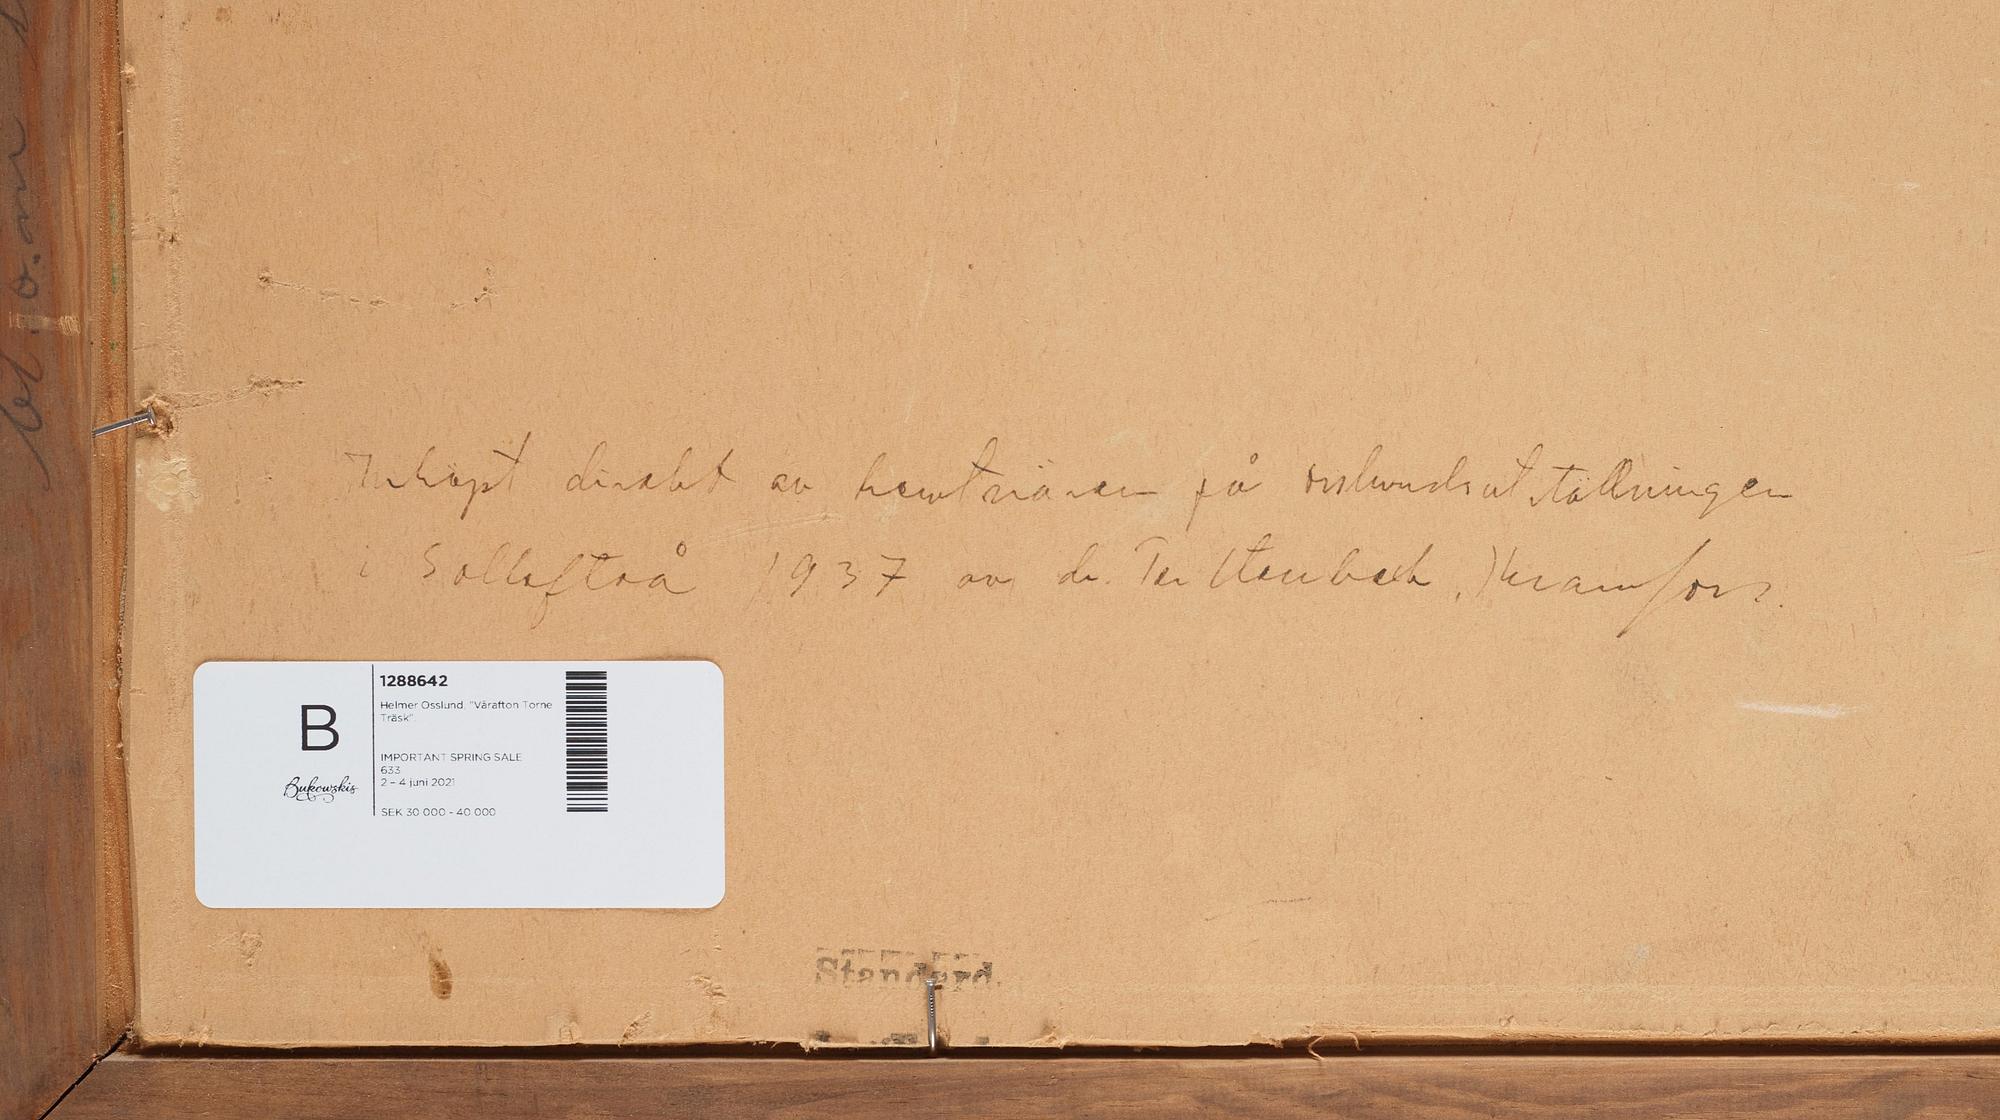 Inköpt direkt av konstnären på osslundsutställningen
i Sollefteå 1937 av dr. Terttenbach, Kramfors.
B
Bukowskis
1288642
Helmer Osslund, "Vårafton Torne
Träsk".
IMPORTANT SPRING SALE
633
2 – 4 juni 2021
SEK 30 000 - 40 000
Standard.